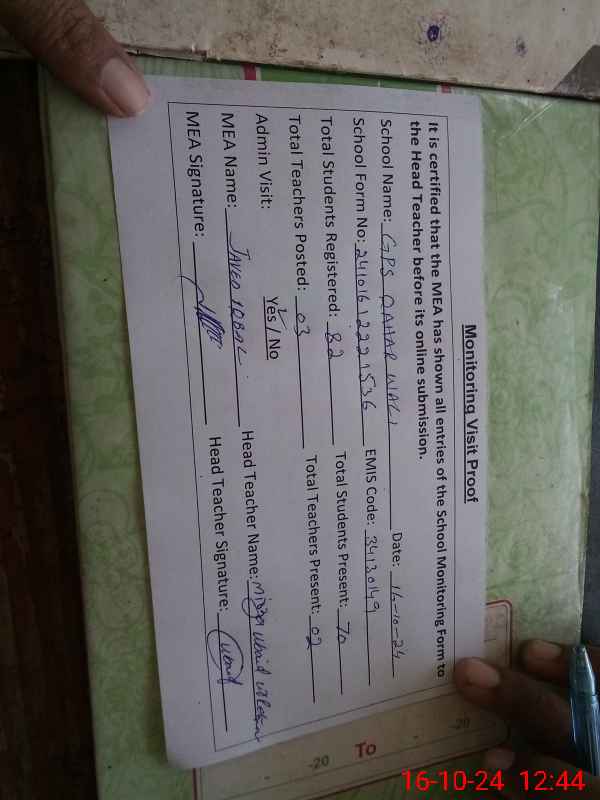 Monitoring Visit Proof
It is certified that the MEA has shown all entries of the School Monitoring Form to
the Head Teacher before its online submission.
School Name: GPS DAHAR WALI Date: 16-10-24
School Form No: 24101612221536 EMIS Code: 34130149
Total Students Registered: 82 Total Students Present: 70
Total Teachers Posted: 03 Total Teachers Present: 02
Admin Visit: Yes / No
MEA Name: JAVED IQBAL Head Teacher Name: Mirza Ubaid
MEA Signature: Head Teacher Signature: Ubaid
-20 To -20
16-10-24 12:44